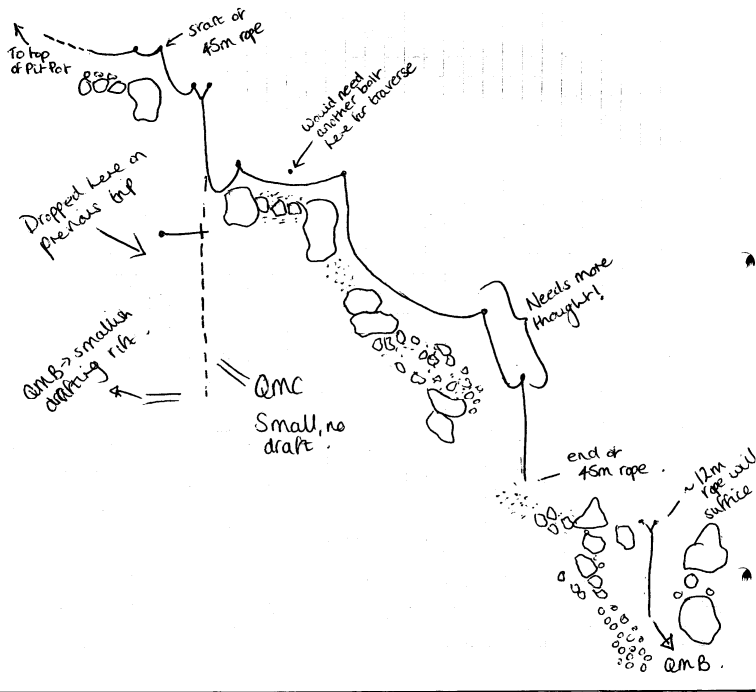 start of
45m rope
To top
of Pit Pot
Would need
another bolt
here for traverse
Dropped here on
previous trip
Needs more
thought!
QMB → smallish
drafting rift.
QMC
Small, no
draft.
end of
45m rope.
~12m
rope will
suffice
QMB.